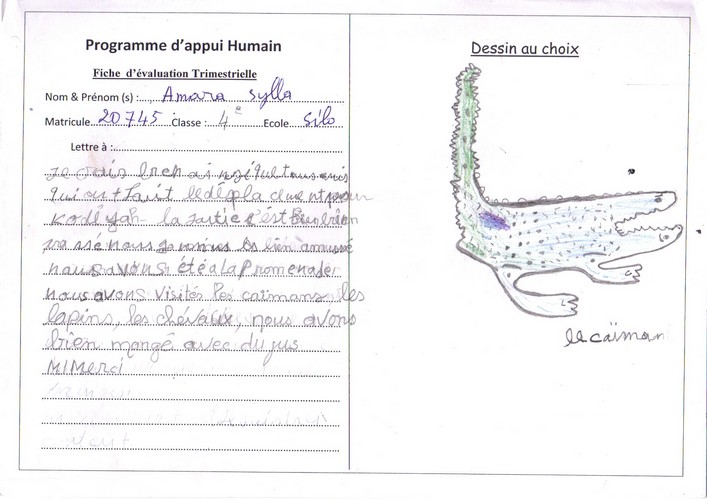 Programme d'appui Humain
Fiche d'évaluation Trimestrielle
Nom & Prénom (s) : Amara Sylla
Matricule 20745 Classe : 4e Ecole Silo
Lettre à :
je suis bien ainsi que tous
qui ont fait le déplacement pour
Kodiyah la sortie s'est bien
passé nous bien amusé
nous avons été à la Promenader
nous avons visités les caïmans les
lapins, les chévaux, nous avons
bien mangé avec du jus
MiMerci
Dessin au choix
le caïman